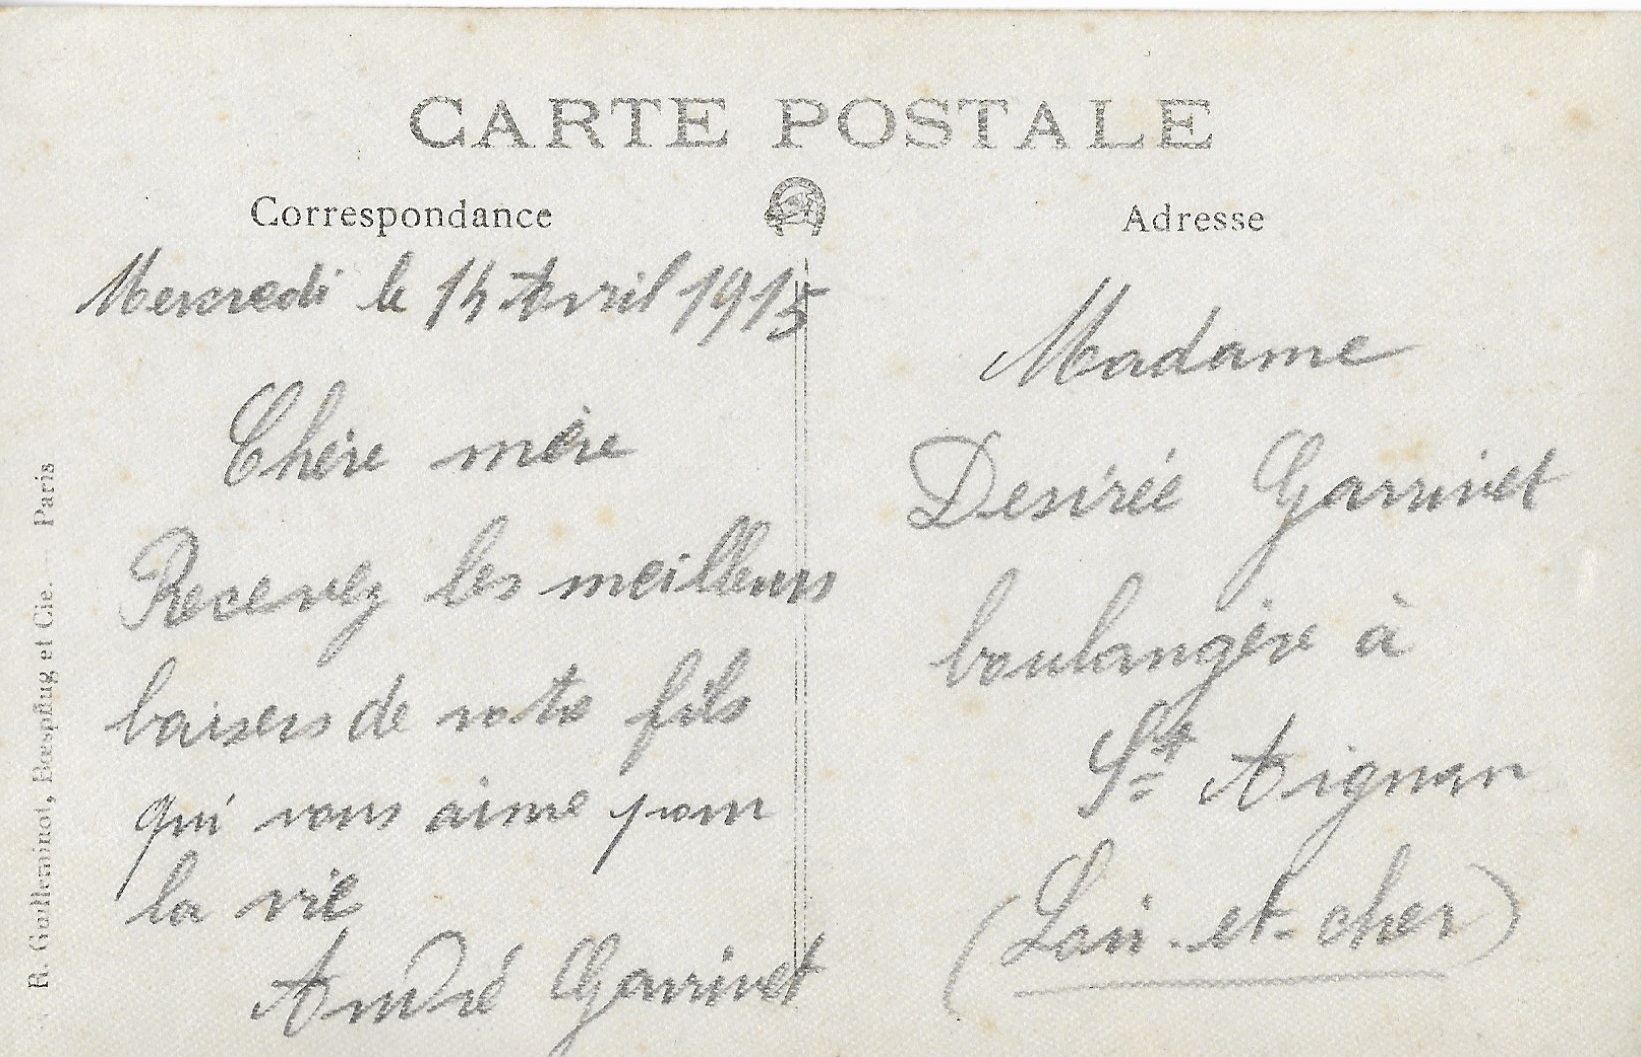 CARTE POSTALE
Correspondance
Mercredi le 14 Avril 1915
Chère mère
Recevez les meilleurs
baisers de votre fils
qui vous aime pour
la vie
André Garrivet
Adresse
Madame
Desirée Garrivet
boulangère à
St Aignan
(Loir-et-cher)
R. Guilleminot, Bœspflug et Cie. — Paris